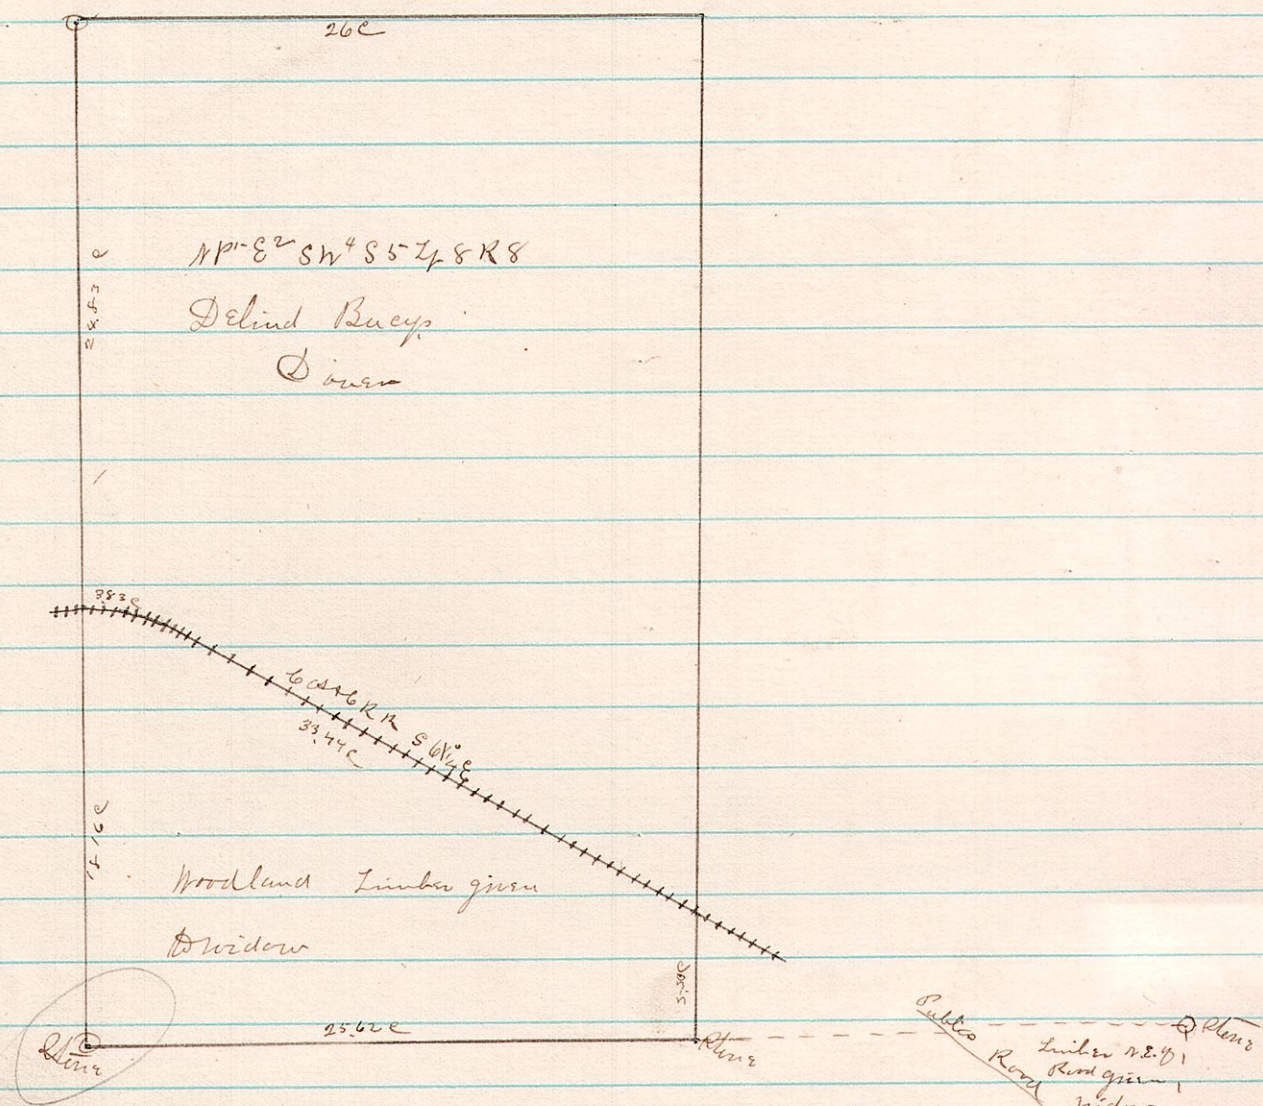 26C
24.83 C
NPt E2 SW4 S5 Tp 8 R 8
Delind Bucys
Dower
3.83 C
RR S 61
33.44 C
18.16 C
Woodland Timber given
Widow
5.50C
25.62 C
Stone
Stone
Stone
Public
Road
Timber N.E. of
Road given
Widow